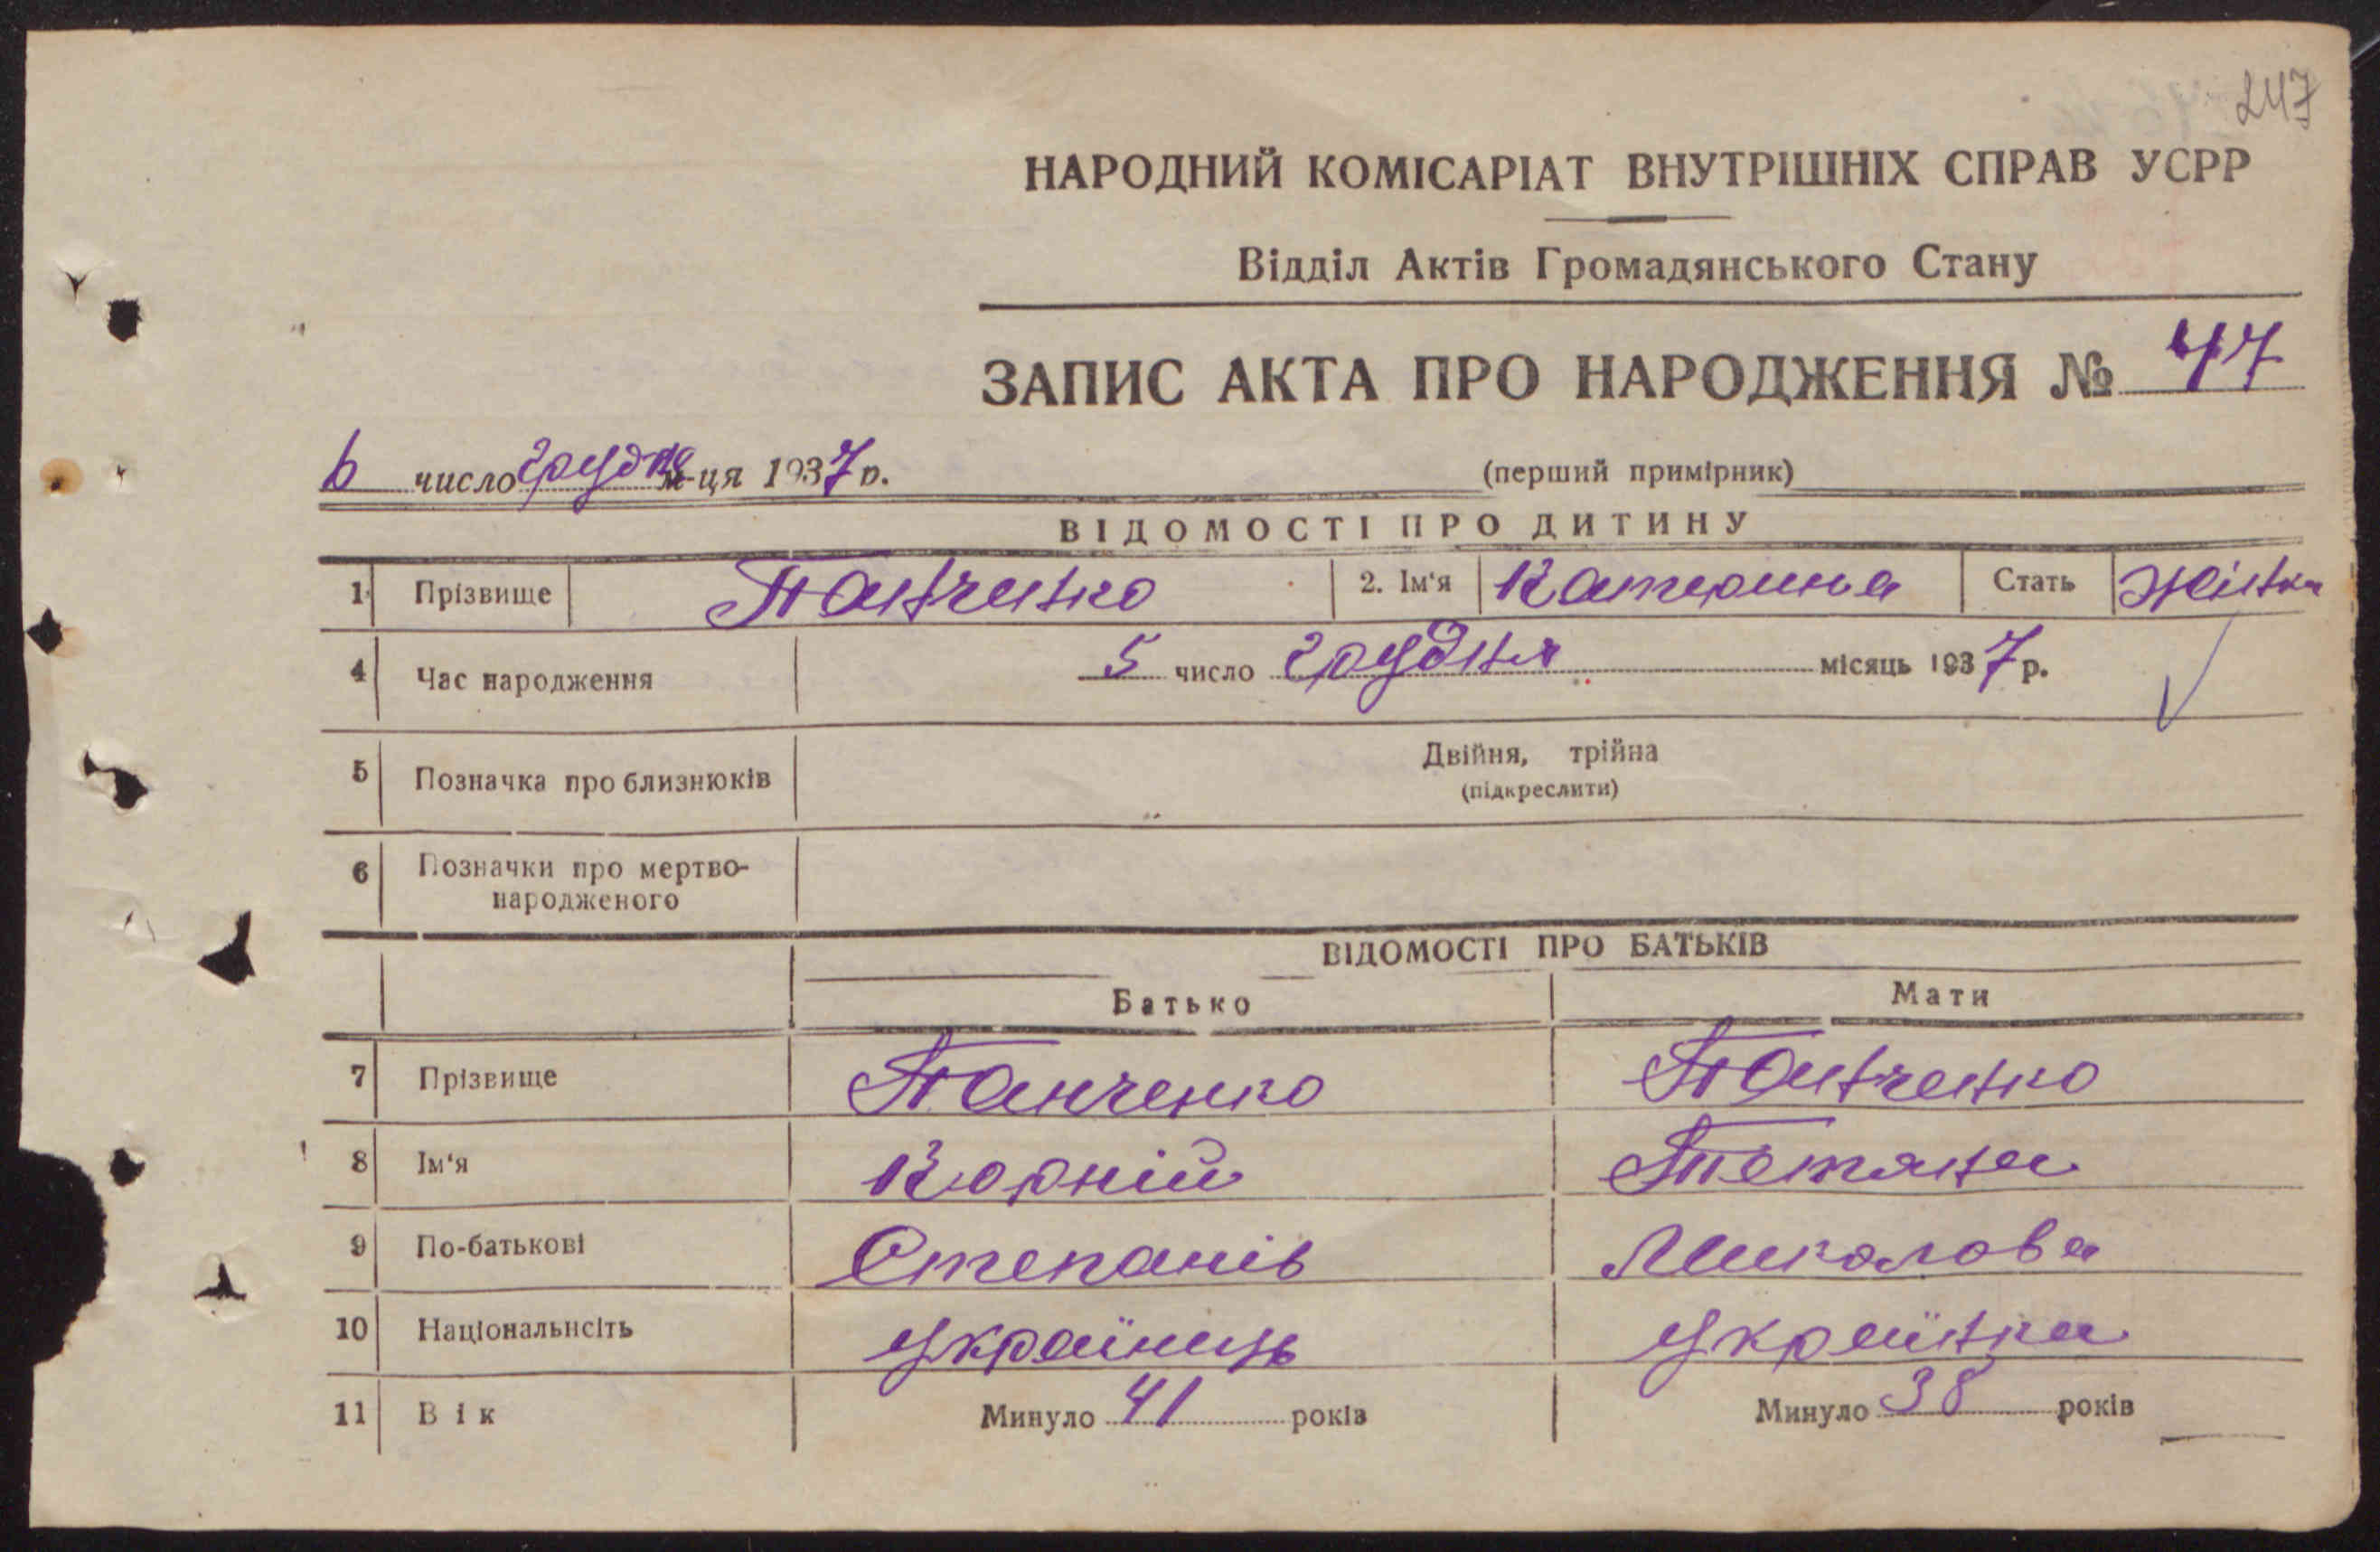 247
НАРОДНИЙ КОМІСАРІАТ ВНУТРІШНІХ СПРАВ УСРР
Відділ Актів Громадянського Стану
ЗАПИС АКТА ПРО НАРОДЖЕННЯ № 47
6 число грудня м-ця 1937 р. (перший примірник)
ВІДОМОСТІ ПРО ДИТИНУ
1 Прізвище Панченко 2. Ім'я Катерина Стать Жінка
4 Час народження 5 число грудня місяць 1937 р.
5 Позначка про близнюків Двійня, трійна
(підкреслити)
6 Позначки про мертво-
народженого
ВІДОМОСТІ ПРО БАТЬКІВ
Батько Мати
7 Прізвище Панченко Панченко
8 Ім'я Корній Тетяна
9 По-батькові Степанів Миколова
10 Національнсіть українець українка
11 Вік Минуло 41 років Минуло 38 років